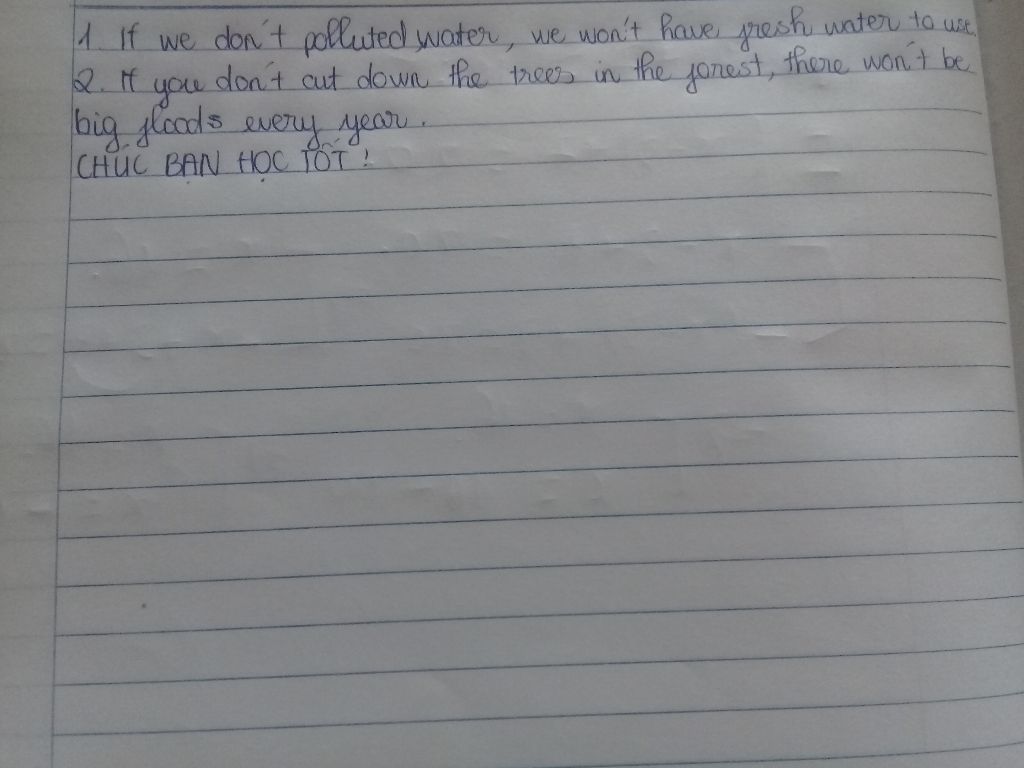 1. If we don't polluted water, we won't have fresh water to use.
2. If you don't cut down the trees in the forest, there won't be
big floods every year.
CHÚC BẠN HỌC TỐT !